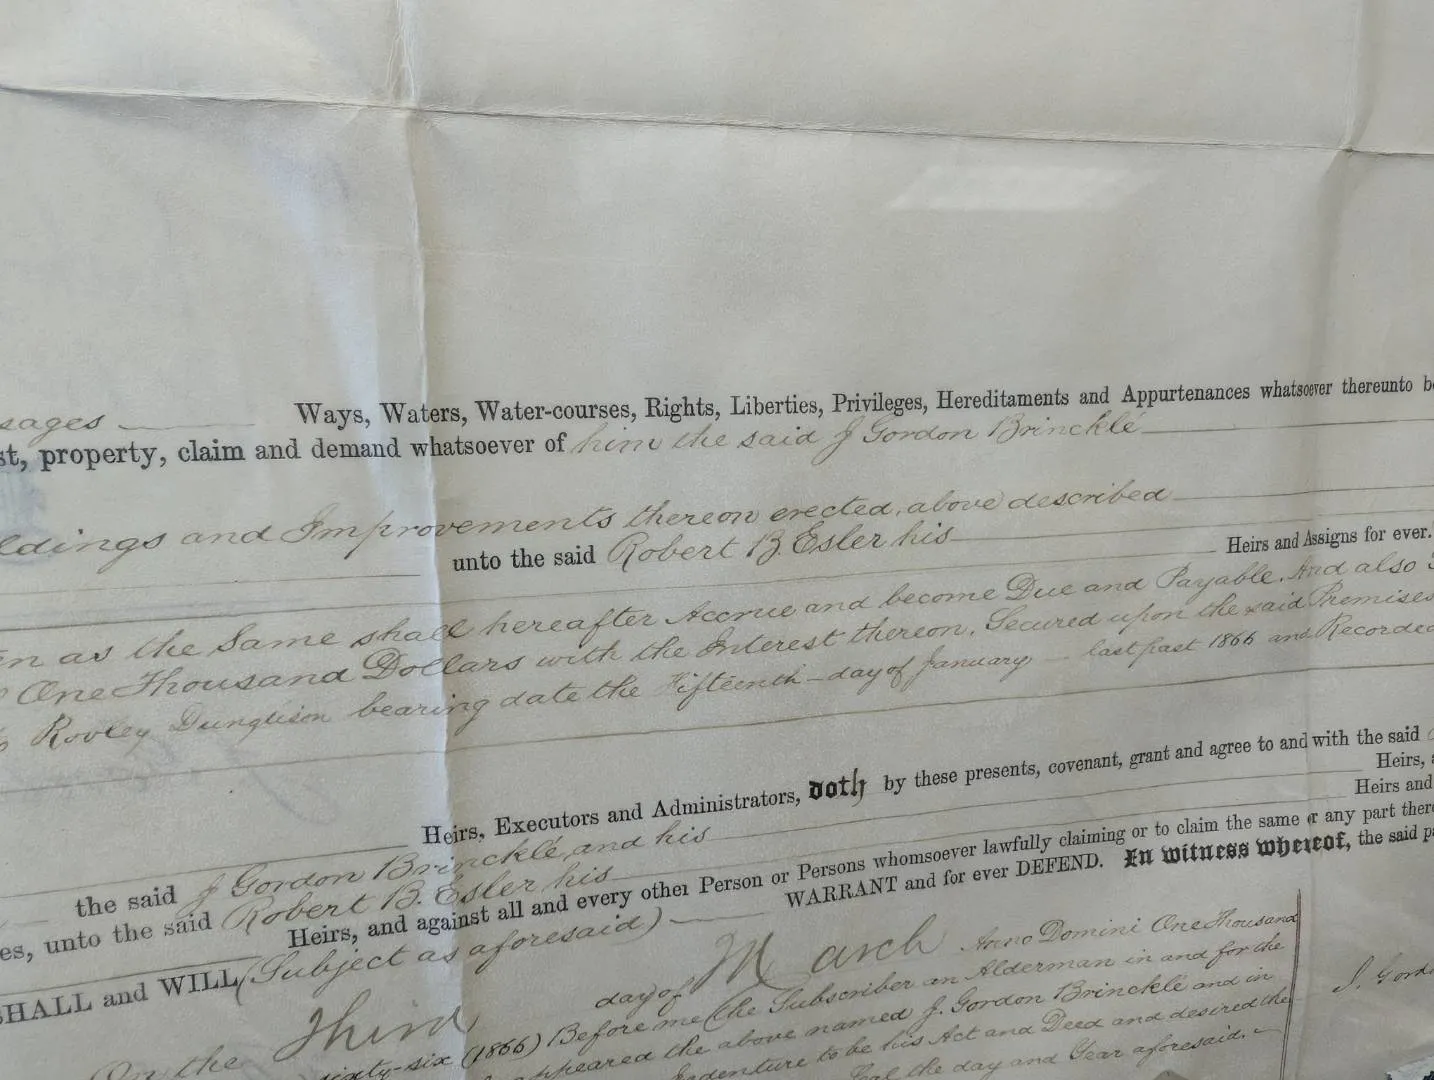 sages Ways, Waters, Water-courses, Rights, Liberties, Privileges, Hereditaments and Appurtenances whatsoever thereunto b
st, property, claim and demand whatsoever of him the said J Gordon Brincklé
ldings and Improvements thereon erected, above described
unto the said Robert B. Esler his Heirs and Assigns for ever.
en as the Same shall hereafter Accrue and become Due and Payable. And also
One Thousand Dollars with the Interest thereon, Secured upon the said Premises
Rovley Dunglison bearing date the Fifteenth day of January last past 1866 and Recorded
Heirs, Executors and Administrators, doth by these presents, covenant, grant and agree to and with the said
the said J Gordon Brincklé, and his Heirs,
es, unto the said Robert B. Esler his Heirs and
Heirs, and against all and every other Person or Persons whomsoever lawfully claiming or to claim the same or any part there
SHALL and WILL (Subject as aforesaid) WARRANT and for ever DEFEND. In witness whereof, the said pa
On the Third day of March Anno Domini One Thousand
sixty-six (1866) Before me (the Subscriber an Alderman in and for the
appeared the above named J. Gordon Brincklé and in
Indenture to be his Act and Deed and desired the
the day and Year aforesaid.
J. Gord